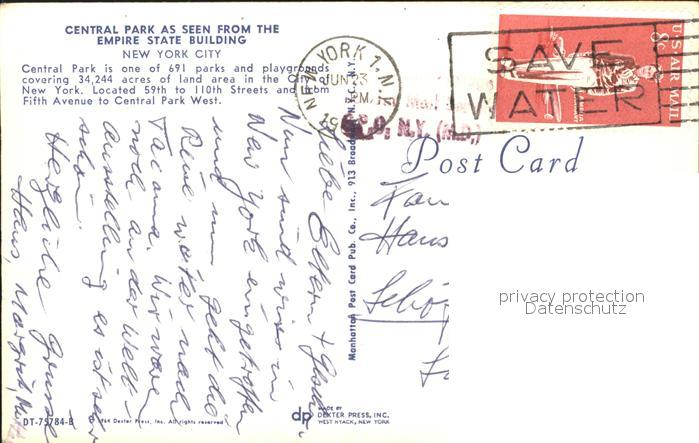 CENTRAL PARK AS SEEN FROM THE
EMPIRE STATE BUILDING
NEW YORK CITY
Central Park is one of 691 parks and playgrounds
covering 34,244 acres of land area in the City
New York. Located 59th to 110th Streets and from
Fifth Avenue to Central Park West.
NEW YORK 1, N.Y.
JUN 23
PM
19
SAVE
WATER
US AIR MAIL
8c
G.P.O., N.Y.
Post Card
Liebe Eltern +
Nun sind wir in
New York eingetroffen
und nun geht die
Reise weiter nach
Tacoma. Wir waren
noch an der Welt-
Ausstellung es ist sehr
schön.
Herzliche Grüsse
Hans, Margrit,
Manhattan Post Card Pub. Co., Inc., 913 Broadway, N.Y.C., N.Y.
Fam
Hans
privacy protection
Datenschutz
DT-75784-B
© 1964 Dexter Press, Inc. All rights reserved
dp
MADE BY
DEXTER PRESS, INC.
WEST NYACK, NEW YORK